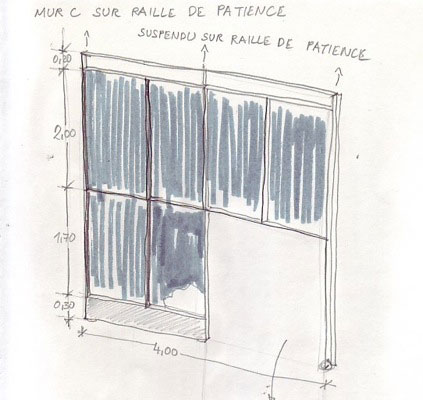 MUR C SUR RAILLE DE PATIENCE
SUSPENDU SUR RAILLE DE PATIENCE
0,20
2,00
1,70
0,30
4,00